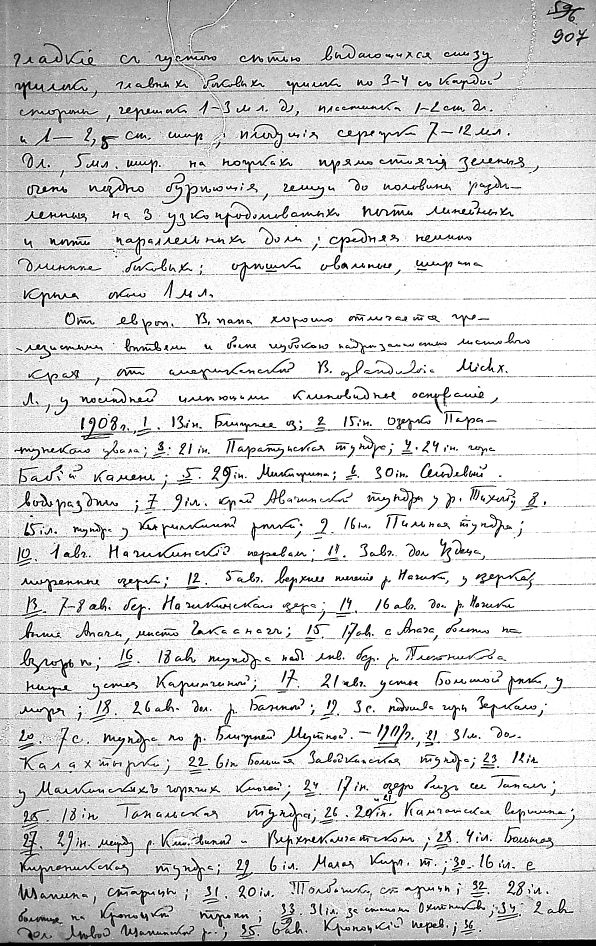 907
гладкіе съ густою сѣтью выдающихся снизу
жилокъ, главныхъ боковыхъ жилокъ по 3-4 съ каждой
стороны, черешокъ 1-3 м.л. дл., пластинка 1-2 ст. дл.
и 1-2,5 ст. шир.; плодущія сережки 7-12 мл.
дл., 5 мл. шир. на ножкахъ прямостоячія зеленыя,
очень поздно бурѣющія, чешуи до половины раздѣ-
ленныя на 3 узко продолговатыхъ почти линейныхъ
и почти параллельныхъ доли; средняя немного
длиннѣе боковыхъ; орѣшки овальные, ширина
крыла около 1 мл.
Отъ европ. B. nana хорошо отличается же-
лезистыми вѣтвями и болѣе глубокою надрѣзанностью листового
края, отъ американской B. glandulosa Michx.
у последней клиновидное основаніе,
1908 г. 1. 13 іюн. Ближнее оз; 2. 15 іюн. озерко Пара-
тунского увала; 3. 21 іюн. Паратунская тундра; 4. 24 іюн. гора
Бабій камень; 5. 29 іюн. Микижина; 6. 30 іюн. Сельдевый
водораздѣлъ; 7. 9 іл. край Авачинской тундры у р. Тихой; 8.
15 іл. тундра у рѣчки; 9. 16 іл. Пильная тундра;
10. 1 авг. Начикинскій перевалъ; 11. 3 авг. дол. Уздеца,
моренные озерки; 12. 5 авг. верхнее теченіе р. Начики, у озерка;
13. 7-8 ав. бер. Начикинскаго озера; 14. 16 ав. дол. р. Начики
выше Апачи, мѣсто; 15. 17 ав. с. Апача, болото на
взгорьѣ; 16. 18 ав. тундра надъ лѣв. бер. р. Плотникова
ниже устья Каримчиной; 17. 21 ав. устье Большой рѣки, у
моря; 18. 26 ав. дол. р. Банной; 19. 3 с. подошва горы Зеркало;
20. 7 с. тундра по р. Ближней Мутной. — 1909 г. 21. 31 м. дол.
Калахтырки; 22. 6 іюн. Большая Завойкинская тундра; 23. 12 іюн.
у Малкинскихъ горячихъ ключей; 24. 17 іюн. озеро близъ сел. Ганалъ;
25. 18 іюн. Ганальская тундра; 26. 20 и 21 іюн. Камчатская вершина;
27. 29 іюн. между р. и Верхнекамчатскомъ; 28. 4 іл. Большая
Кирганикская тундра; 29. 6 іл. Малая Кирг. т.; 30. 16 іл. с.
Щапина, старицы; 31. 20 іл. Толбачикъ, старицы; 32. 28 іл.
болотце на Кроноцкой тропѣ; 33. 31 іл. за 34. 2 ав.
дол. Лѣвой Щапинской р.; 35. 6 ав. Кроноцкій перев.; 36.